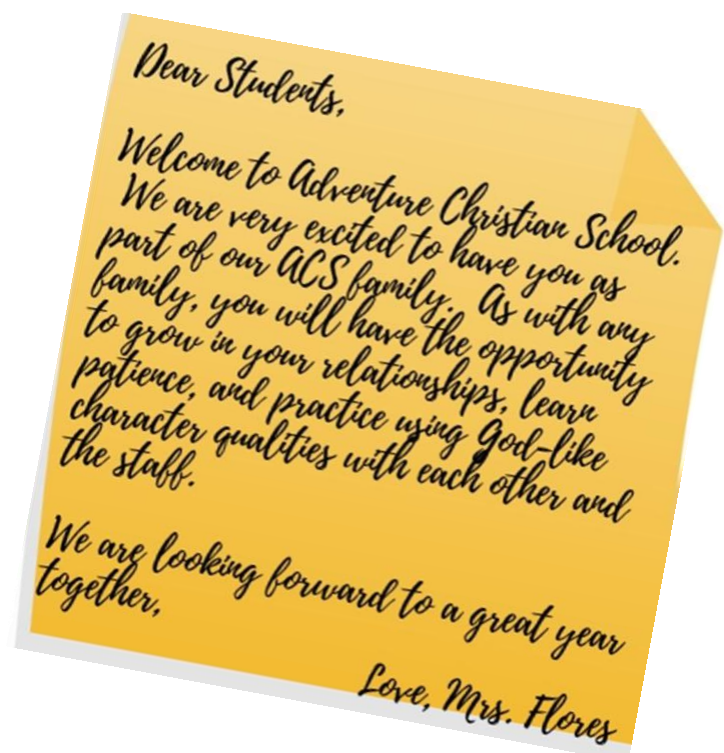 Dear Students,
Welcome to Adventure Christian School.
We are very excited to have you as
part of our ACS family. As with any
family, you will have the opportunity
to grow in your relationships, learn
patience, and practice using God-like
character qualities with each other and
the staff.
We are looking forward to a great year
together,
Love, Mrs. Flores